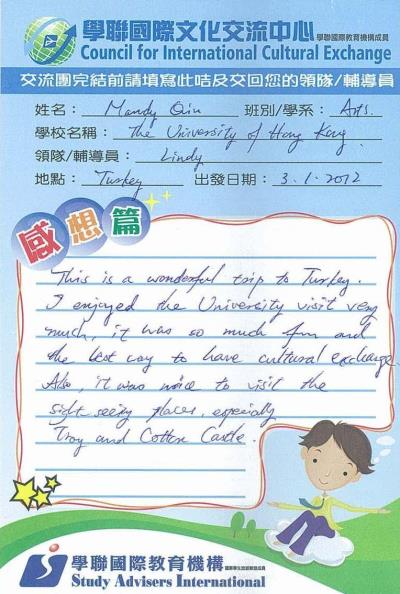 學聯國際文化交流中心 學聯國際教育機構成員
Council for International Cultural Exchange
交流團完結前請填寫此咭及交回您的領隊/輔導員
姓名： Mandy Qiu 班別/學系： Arts.
學校名稱： The University of Hong Kong
領隊/輔導員： Lindy
地點： Turkey 出發日期： 3.1.2012
感想篇
This is a wonderful trip to Turkey.
I enjoyed the University visit very
much, it was so much fun and
the best way to have cultural exchange.
Also, it was nice to visit the
sight seeing places, especially
Troy and Cotton Castle.
學聯國際教育機構
Study Advisers International